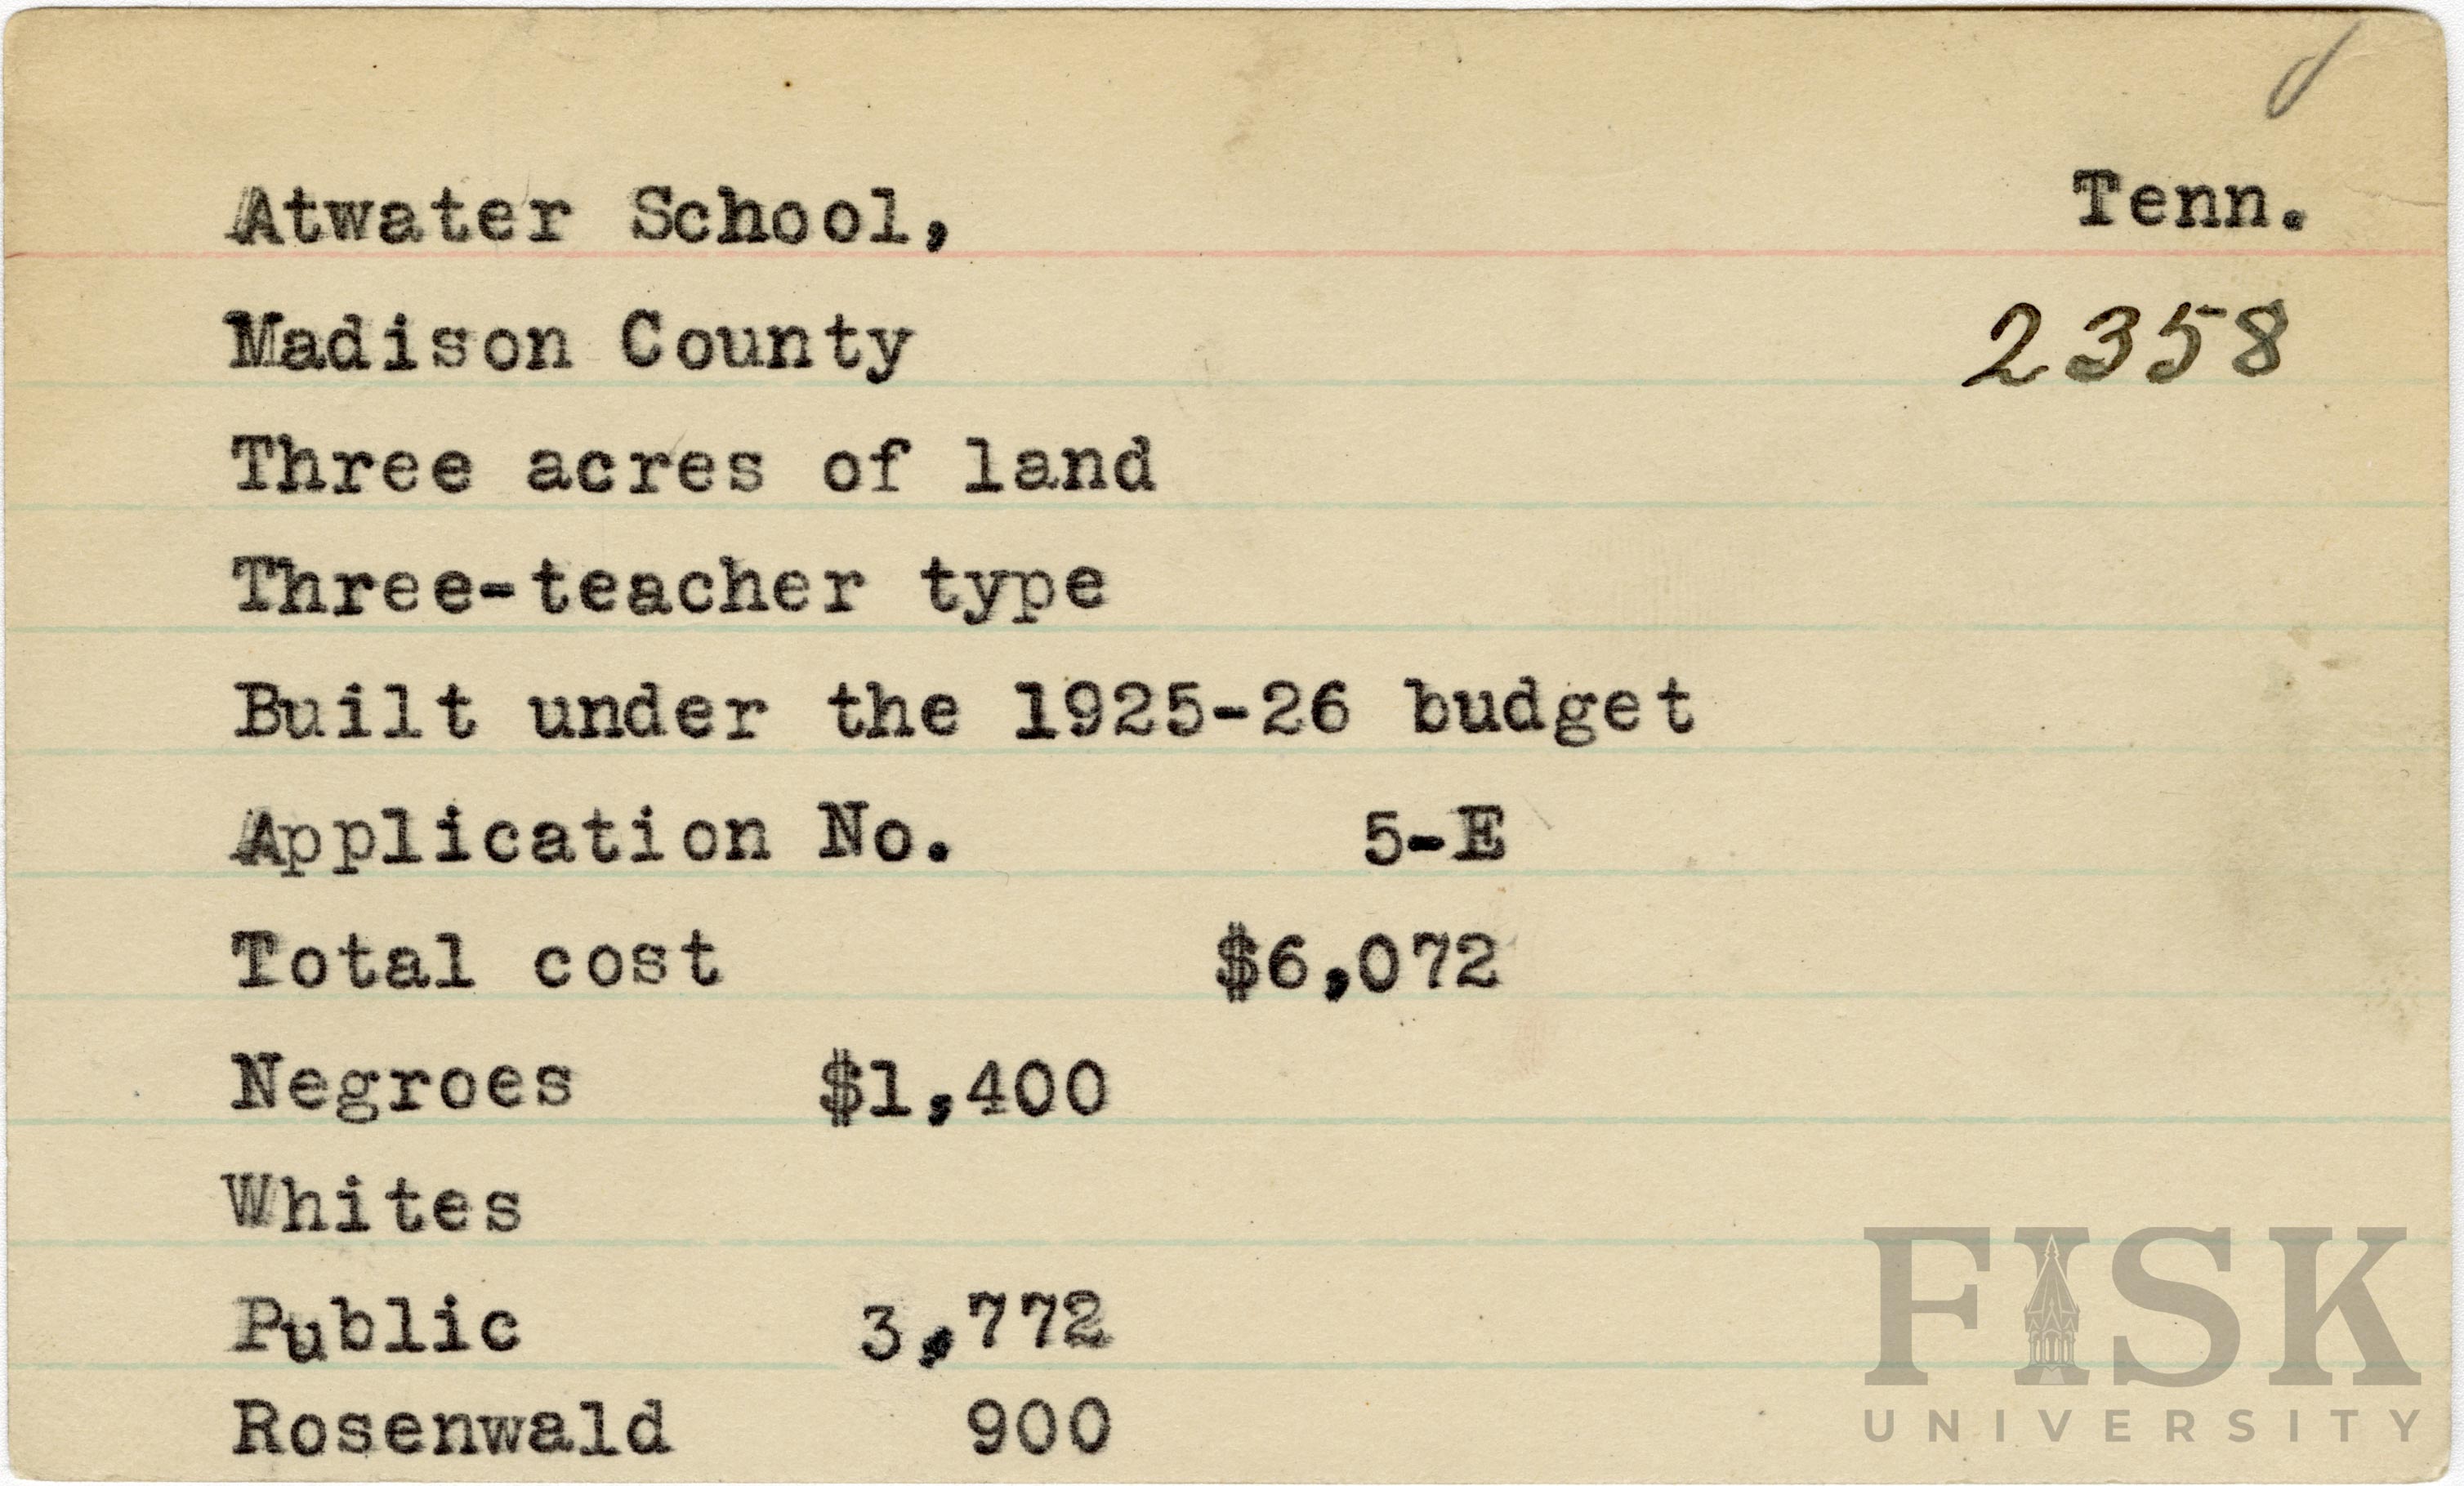 Atwater School, Tenn.
Madison County 2358
Three acres of land
Three-teacher type
Built under the 1925-26 budget
Application No. 5-E
Total cost $6,072
Negroes $1,400
Whites
Public 3,772
Rosenwald 900
FISK
UNIVERSITY